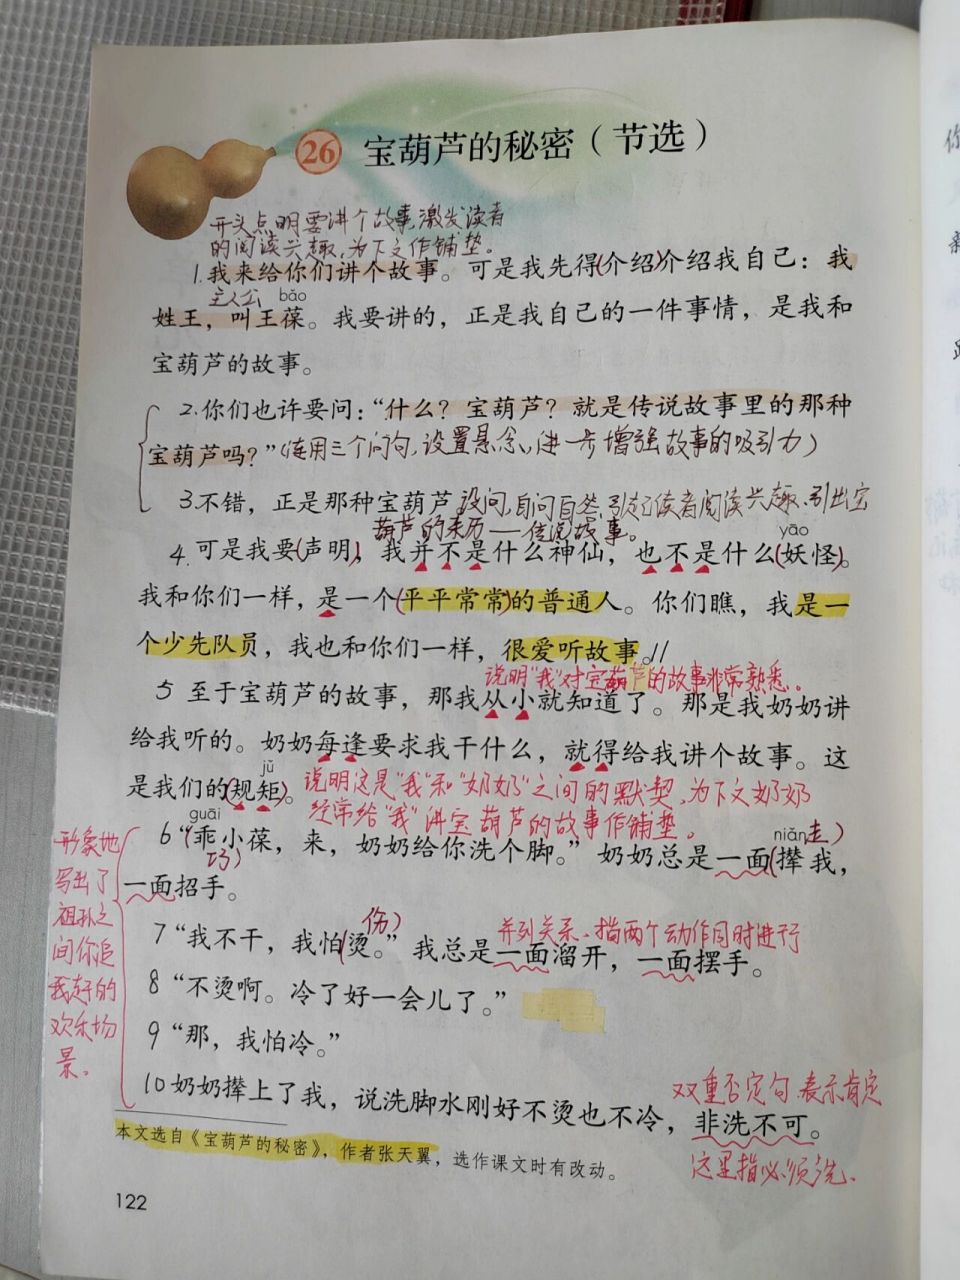 26 宝葫芦的秘密（节选）
开头点明要讲个故事,激发读者
的阅读兴趣,为下文作铺垫。
1.我来给你们讲个故事。可是我先得(介绍)介绍我自己：我
主人公 bǎo
姓王，叫王葆。我要讲的，正是我自己的一件事情，是我和
宝葫芦的故事。
2.你们也许要问：“什么？宝葫芦？就是传说故事里的那种
宝葫芦吗？”(连用三个问句,设置悬念,进一步增强故事的吸引力)
3.不错，正是那种宝葫芦 设问,自问自答,引起读者阅读兴趣、引出宝
葫芦的来历——传说故事。 yāo
4.可是我要(声明)，我并不是什么神仙，也不是什么(妖怪)。
我和你们一样，是一个(平平常常)的普通人。你们瞧，我是一
个少先队员，我也和你们一样，很爱听故事。//
说明"我"对宝葫芦的故事非常熟悉。
5 至于宝葫芦的故事，那我从小就知道了。那是我奶奶讲
给我听的。奶奶每逢要求我干什么，就得给我讲个故事。这
jǔ
是我们的(规矩)。说明这是"我"和"奶奶"之间的默契,为下文奶奶
经常给"我"讲宝葫芦的故事作铺垫。
guāi niǎn 走)
6“(乖小葆，来，奶奶给你洗个脚。”奶奶总是一面(撵我，
巧)
一面招手。
形象地
写出了
祖孙之
间你追
我赶的
欢乐场
景。
伤)
7“我不干，我怕(烫。”我总是一面溜开，一面摆手。
并列关系、指两个动作同时进行
8“不烫啊。冷了好一会儿了。”
9“那，我怕冷。”
10奶奶撵上了我，说洗脚水刚好不烫也不冷，非洗不可。
双重否定句 表示肯定
这里指必须洗.
本文选自《宝葫芦的秘密》，作者张天翼，选作课文时有改动。
122